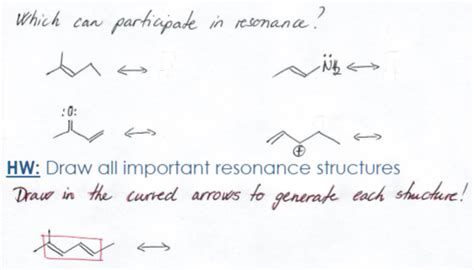 Which can participate in resonance?
N̈H₂
:O:
⊕
HW: Draw all important resonance structures
Draw in the curved arrows to generate each structure!